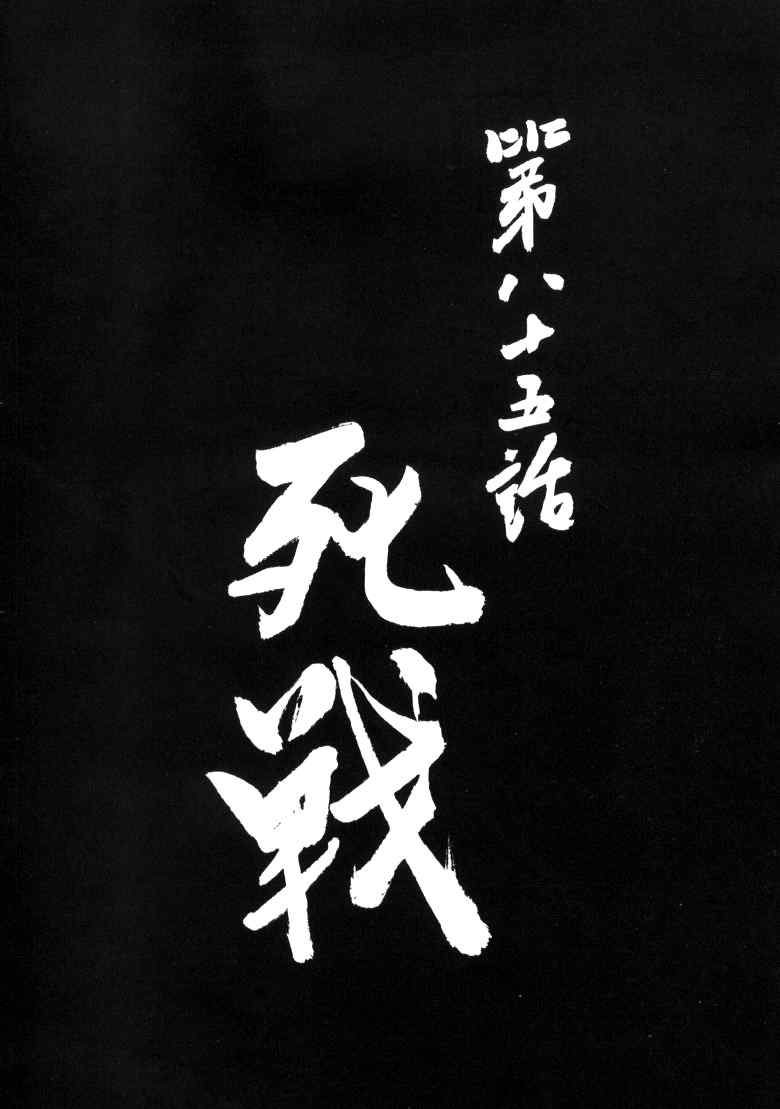 第八十五話
死戦